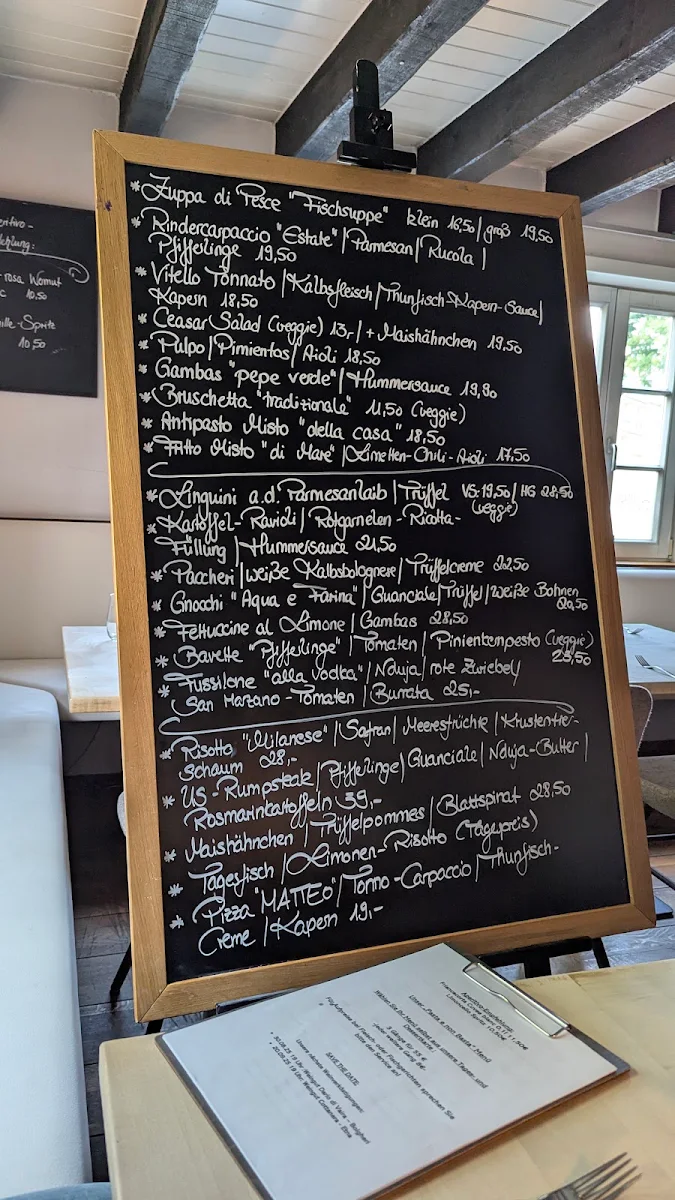 * Zuppa di Pesce "Fischsuppe" klein 16,50 / groß 19,50
* Rindercarpaccio "Estate" | Parmesan | Rucola |
Pfifferlinge 19,50
* Vitello Tonnato | Kalbsfleisch | Thunfisch-Kapern-Sauce |
Kapern 18,50
* Ceasar Salad (veggie) 13,- / + Maishähnchen 19,50
* Pulpo | Pimientos | Aioli 18,50
* Gambas "pepe verde" | Hummersauce 19,90
* Bruschetta "tradizionale" 11,50 (veggie)
* Antipasto Misto "della casa" 18,50
* Fritto Misto "di Mare" | Limetten-Chili-Aioli 17,50
* Linguini a.d. Parmesanlaib | Trüffel VS: 19,50 / HG 28,50
(veggie)
* Kartoffel-Ravioli | Rotgarnelen-Ricotta-
Füllung | Hummersauce 21,50
* Paccheri | weiße Kalbsbolognese | Trüffelcreme 22,50
* Gnocchi "Aqua e Farina" | Guanciale | Trüffel | weiße Bohnen
20,50
* Fettuccine al Limone | Gambas 28,50
* Bavette "Pfifferlinge" | Tomaten | Pinienkernpesto (veggie)
23,50
* Fussilone "alla vodka" | Nduja | rote Zwiebel |
San Marzano-Tomaten | Burrata 25,-
* Risotto "Milanese" | Safran | Meeresfrüchte | Krustentier-
schaum 28,-
* US-Rumpsteak | Pfifferlinge | Guanciale | Nduja-Butter |
Rosmarinkartoffeln 39,-
* Maishähnchen | Trüffelpommes | Blattspinat 28,50
* Tagesfisch | Limonen-Risotto (Tagespreis)
* Pizza "MATTEO" | Tonno-Carpaccio | Thunfisch-
Creme | Kapern 19,-
rosa Wermut
10,50
Spritz
10,50
Aperitivo-Empfehlung:
Unser "Pasta e non Basta"-Menü
Wählen Sie Ihr Menü selbst aus unsere Tages und
3 Gänge für 55 €
jeder weitere Gang
bitte den Service an!
SAVE THE DATE
Unsere nächste Weinverkostungen: